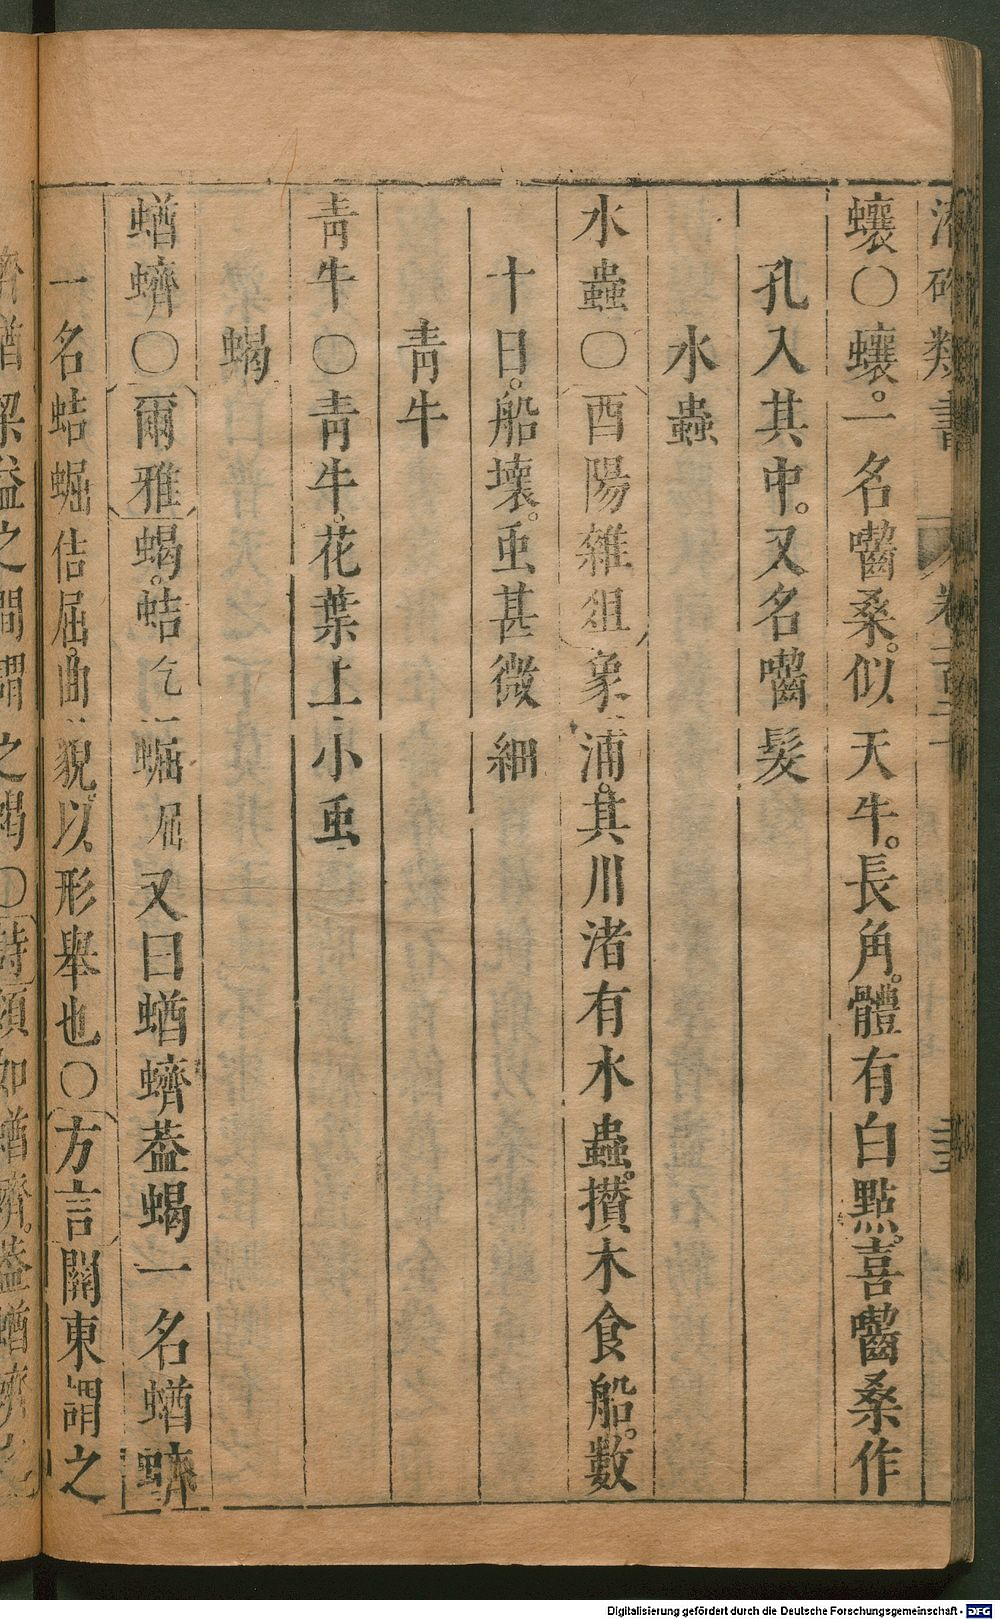 潛確類書 卷一百二十
蠰○蠰。一名齧桑。似天牛。長角。體有白點。喜齧桑作
孔入其中。又名齧髮
水蟲
水蟲○酉陽雜俎象浦。其川渚有水蟲。攅木食船。數
十日。船壞。䖝甚微細
靑牛
靑牛○靑牛。花葉上小䖝
蝎
蝤蠐○爾雅蝎。蛣乞𧌑屈又曰蝤蠐葢蝎一名蝤蠐
一名蛣𧌑佶屈。曲貌。以形舉也○方言關東謂之
蠐蝤梁益之間謂之蝎○詩領如蝤蠐。葢蝤蠐
Digitalisierung gefördert durch die Deutsche Forschungsgemeinschaft - DFG